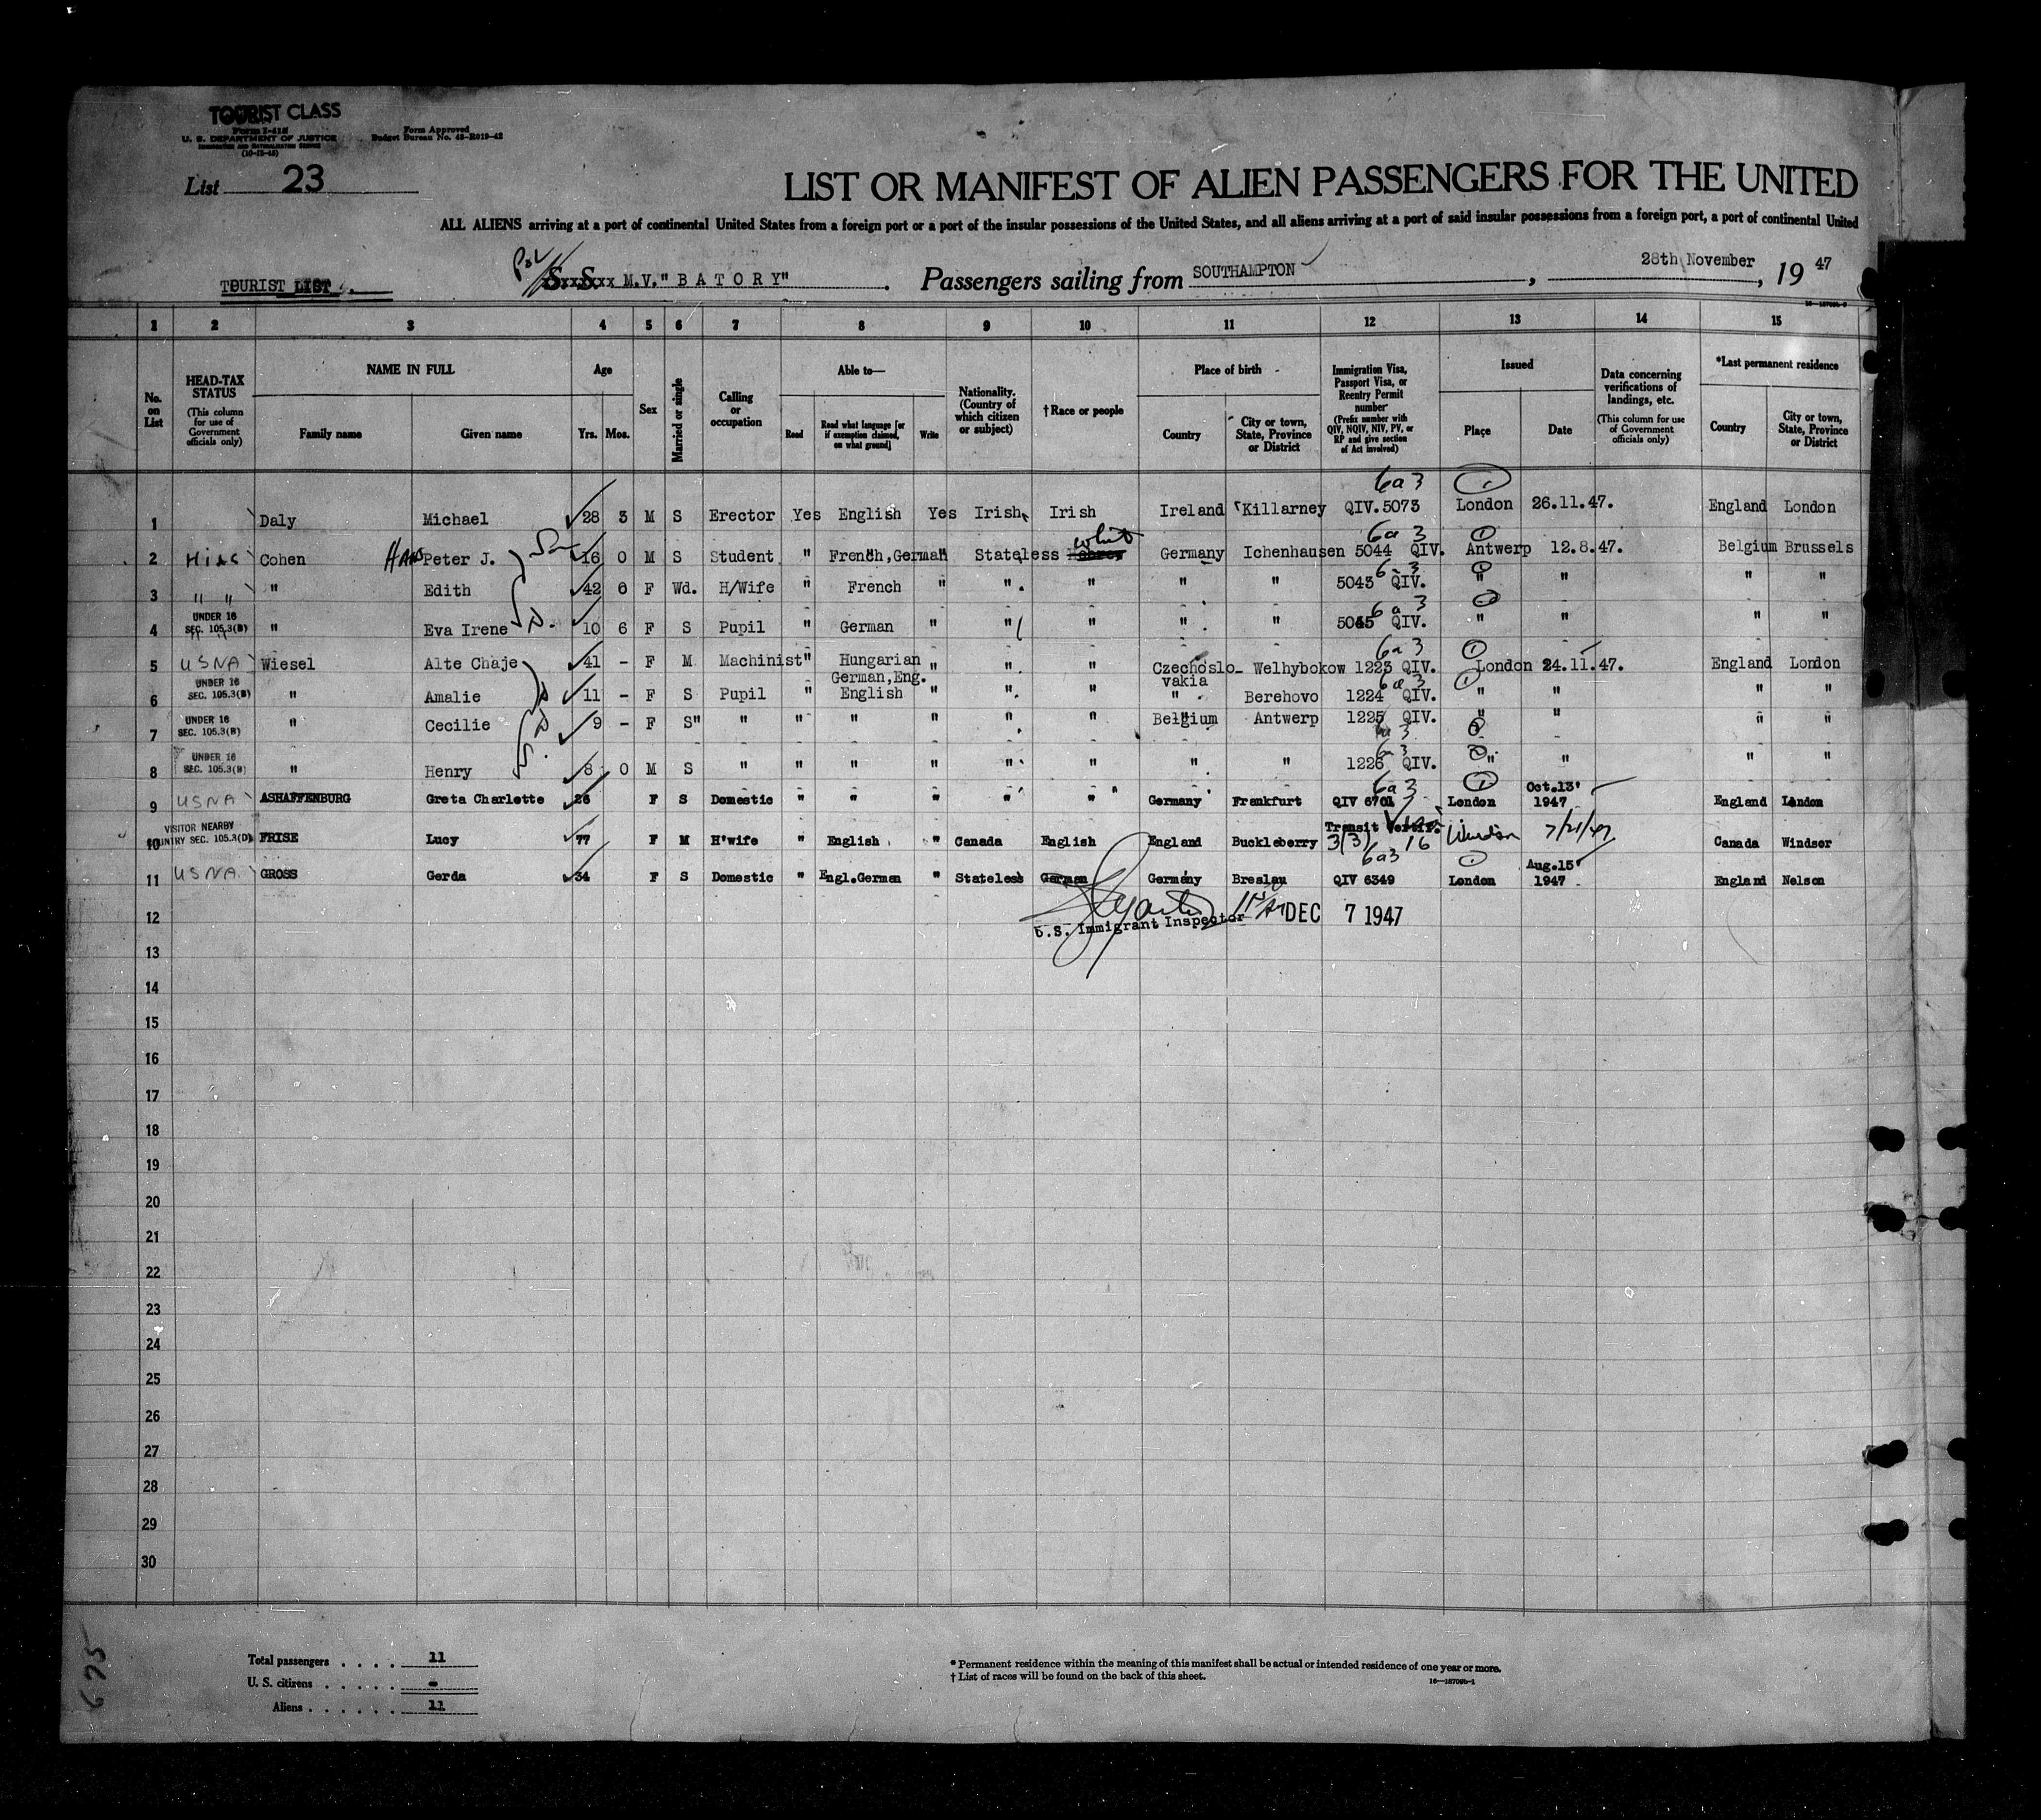 TOURIST CLASS
Form I-415
U. S. DEPARTMENT OF JUSTICE
IMMIGRATION AND NATURALIZATION SERVICE
Form Approved
Budget Bureau No. 43-R019-42
List 23
LIST OR MANIFEST OF ALIEN PASSENGERS FOR THE UNITED
ALL ALIENS arriving at a port of continental United States from a foreign port or a port of the insular possessions of the United States, and all aliens arriving at a port of said insular possessions from a foreign port, a port of continental United
TOURIST LIST M.V."BATORY" Passengers sailing from SOUTHAMPTON, 28th November, 19 47
1 2 3 4 5 6 7 8 9 10 11 12 13 14 15
No. on List
HEAD-TAX STATUS
(This column for use of Government officials only)
NAME IN FULL
Family name Given name
Age
Yrs. Mos.
Sex
Married or single
Calling or occupation
Able to—
Read Read what language [or if exemption claimed, on what ground] Write
Nationality. (Country of which citizen or subject)
†Race or people
Place of birth
Country City or town, State, Province or District
Immigration Visa, Passport Visa, or Reentry Permit number
(Prefix number with QIV, NQIV, NIV, PV, or RP and give section of Act involved)
Issued
Place Date
Data concerning verifications of landings, etc.
(This column for use of Government officials only)
*Last permanent residence
Country City or town, State, Province or District
6a3 1
1 Daly Michael 28 3 M S Erector Yes English Yes Irish Irish Ireland Killarney QIV.5073 London 26.11.47. England London
white 6a3 1
2 Hias Cohen Hans Peter J. 16 0 M S Student " French,German Stateless Germany Ichenhausen 5044 QIV. Antwerp 12.8.47. Belgium Brussels
3 " " " Edith 42 6 F Wd. H/Wife " French " " " " " 5043 QIV. " " " "
UNDER 16
4 SEC. 105.3(B) " Eva Irene 10 6 F S Pupil " German " " " " " 5045 QIV. " " " "
5 USNA Wiesel Alte Chaje 41 - F M Machinist " Hungarian " " " Czechoslo- Welhybokow 1223 QIV. London 24.11.47. England London
German,Eng. vakia
UNDER 16
6 SEC. 105.3(B) " Amalie 11 - F S Pupil " English " " " " Berehovo 1224 QIV. " " " "
UNDER 16
7 SEC. 105.3(B) " Cecilie 9 - F S" " " " " " " Belgium Antwerp 1225 QIV. " " " "
UNDER 16
8 SEC. 105.3(B) " Henry 8 0 M S " " " " " " " " 1226 QIV. " " " "
6a3 1 Oct.13'
9 USNA ASHAFFENBURG Greta Charlotte 26 F S Domestic " " " " " Germany Frankfurt QIV 6701 London 1947 England London
VISITOR NEARBY
10 COUNTRY SEC. 105.3(D) FRISE Lucy 77 F M H'wife " English " Canada English England Buckleberry Transit Vertif. 3(3) 16 Windsor 7/21/47 Canada Windsor
6a3 1 Aug.15'
11 USNA GROSS Gerda 34 F S Domestic " Engl.German " Stateless German Germany Breslau QIV 6349 London 1947 England Nelson
12 U.S. Immigrant Inspector DEC 7 1947
13
14
15
16
17
18
19
20
21
22
23
24
25
26
27
28
29
30
675
Total passengers . . . . 11
U. S. citizens . . . . . -
Aliens . . . . . . 11
* Permanent residence within the meaning of this manifest shall be actual or intended residence of one year or more.
† List of races will be found on the back of this sheet.